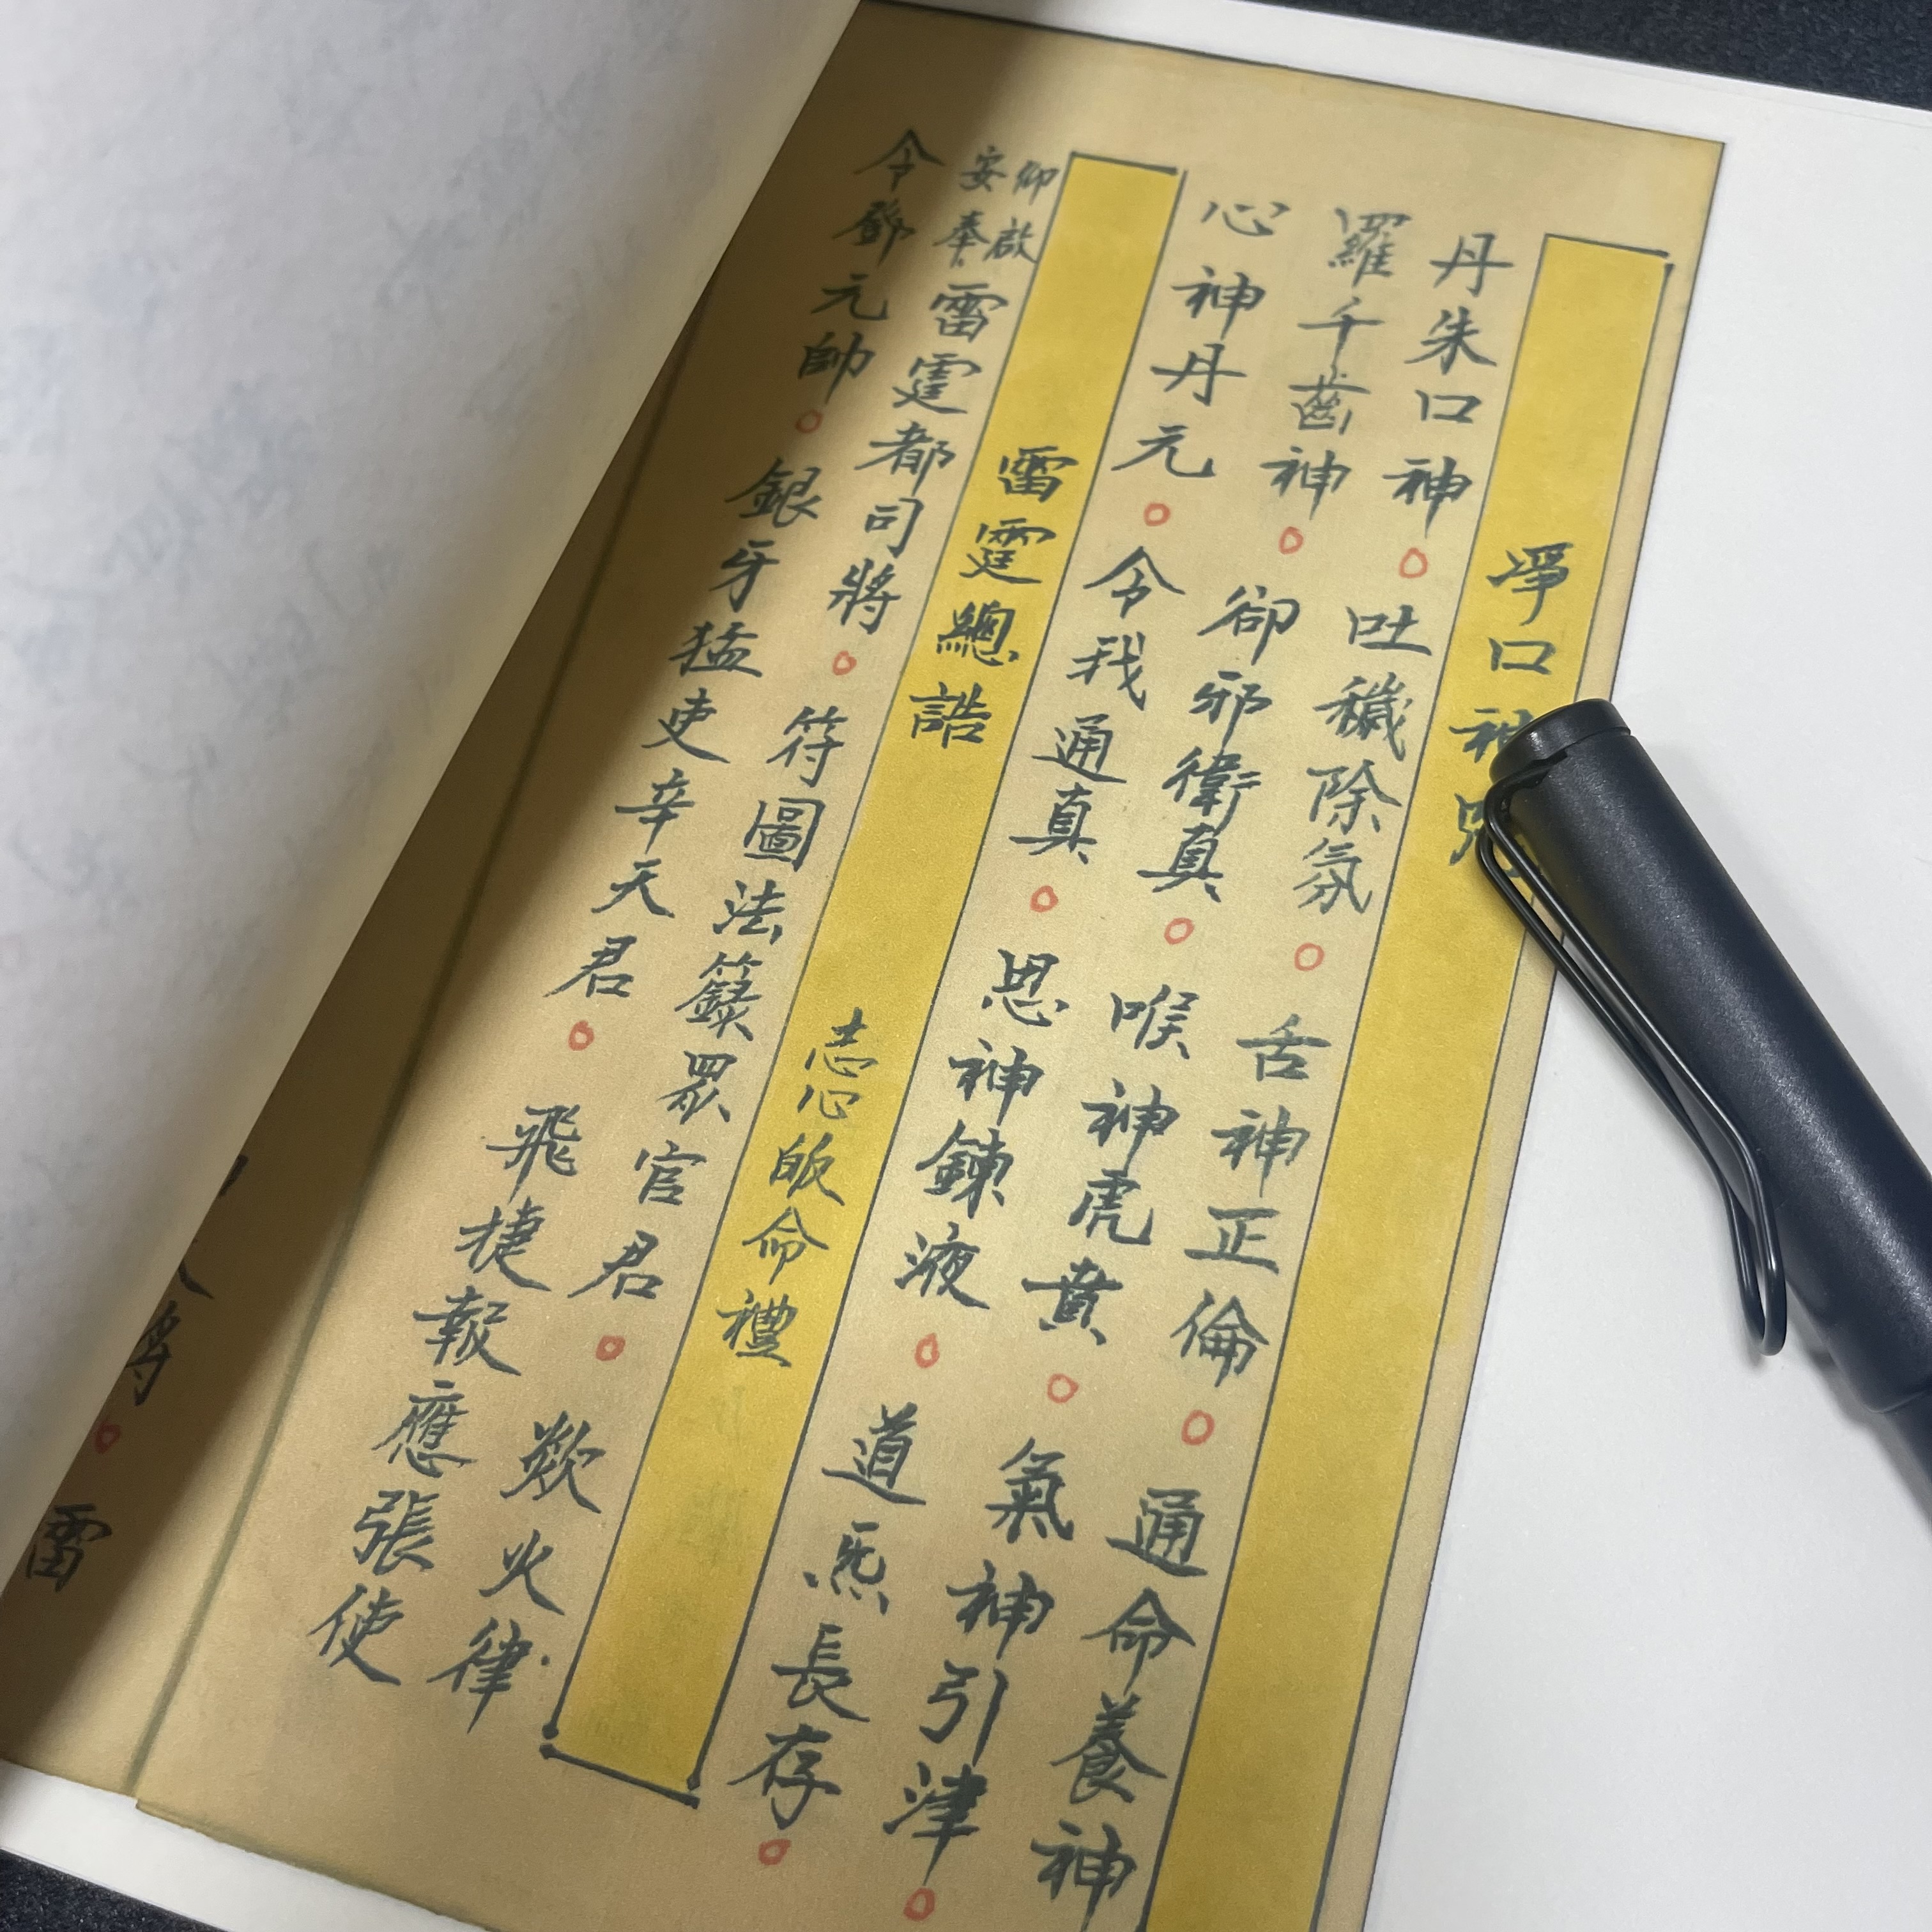 淨口神咒
丹朱口神○吐穢除氛○舌神正倫○通命養神
羅千齒神○卻邪衛真○喉神虎賁○氣神引津
心神丹元○令我通真○思神鍊液○道炁長存○
雷霆總誥 志心皈命禮
仰啟
安奉
雷霆都司將○符圖法籙眾官君○欻火律
令鄧元帥○銀牙猛吏辛天君○飛捷報應張使
雷